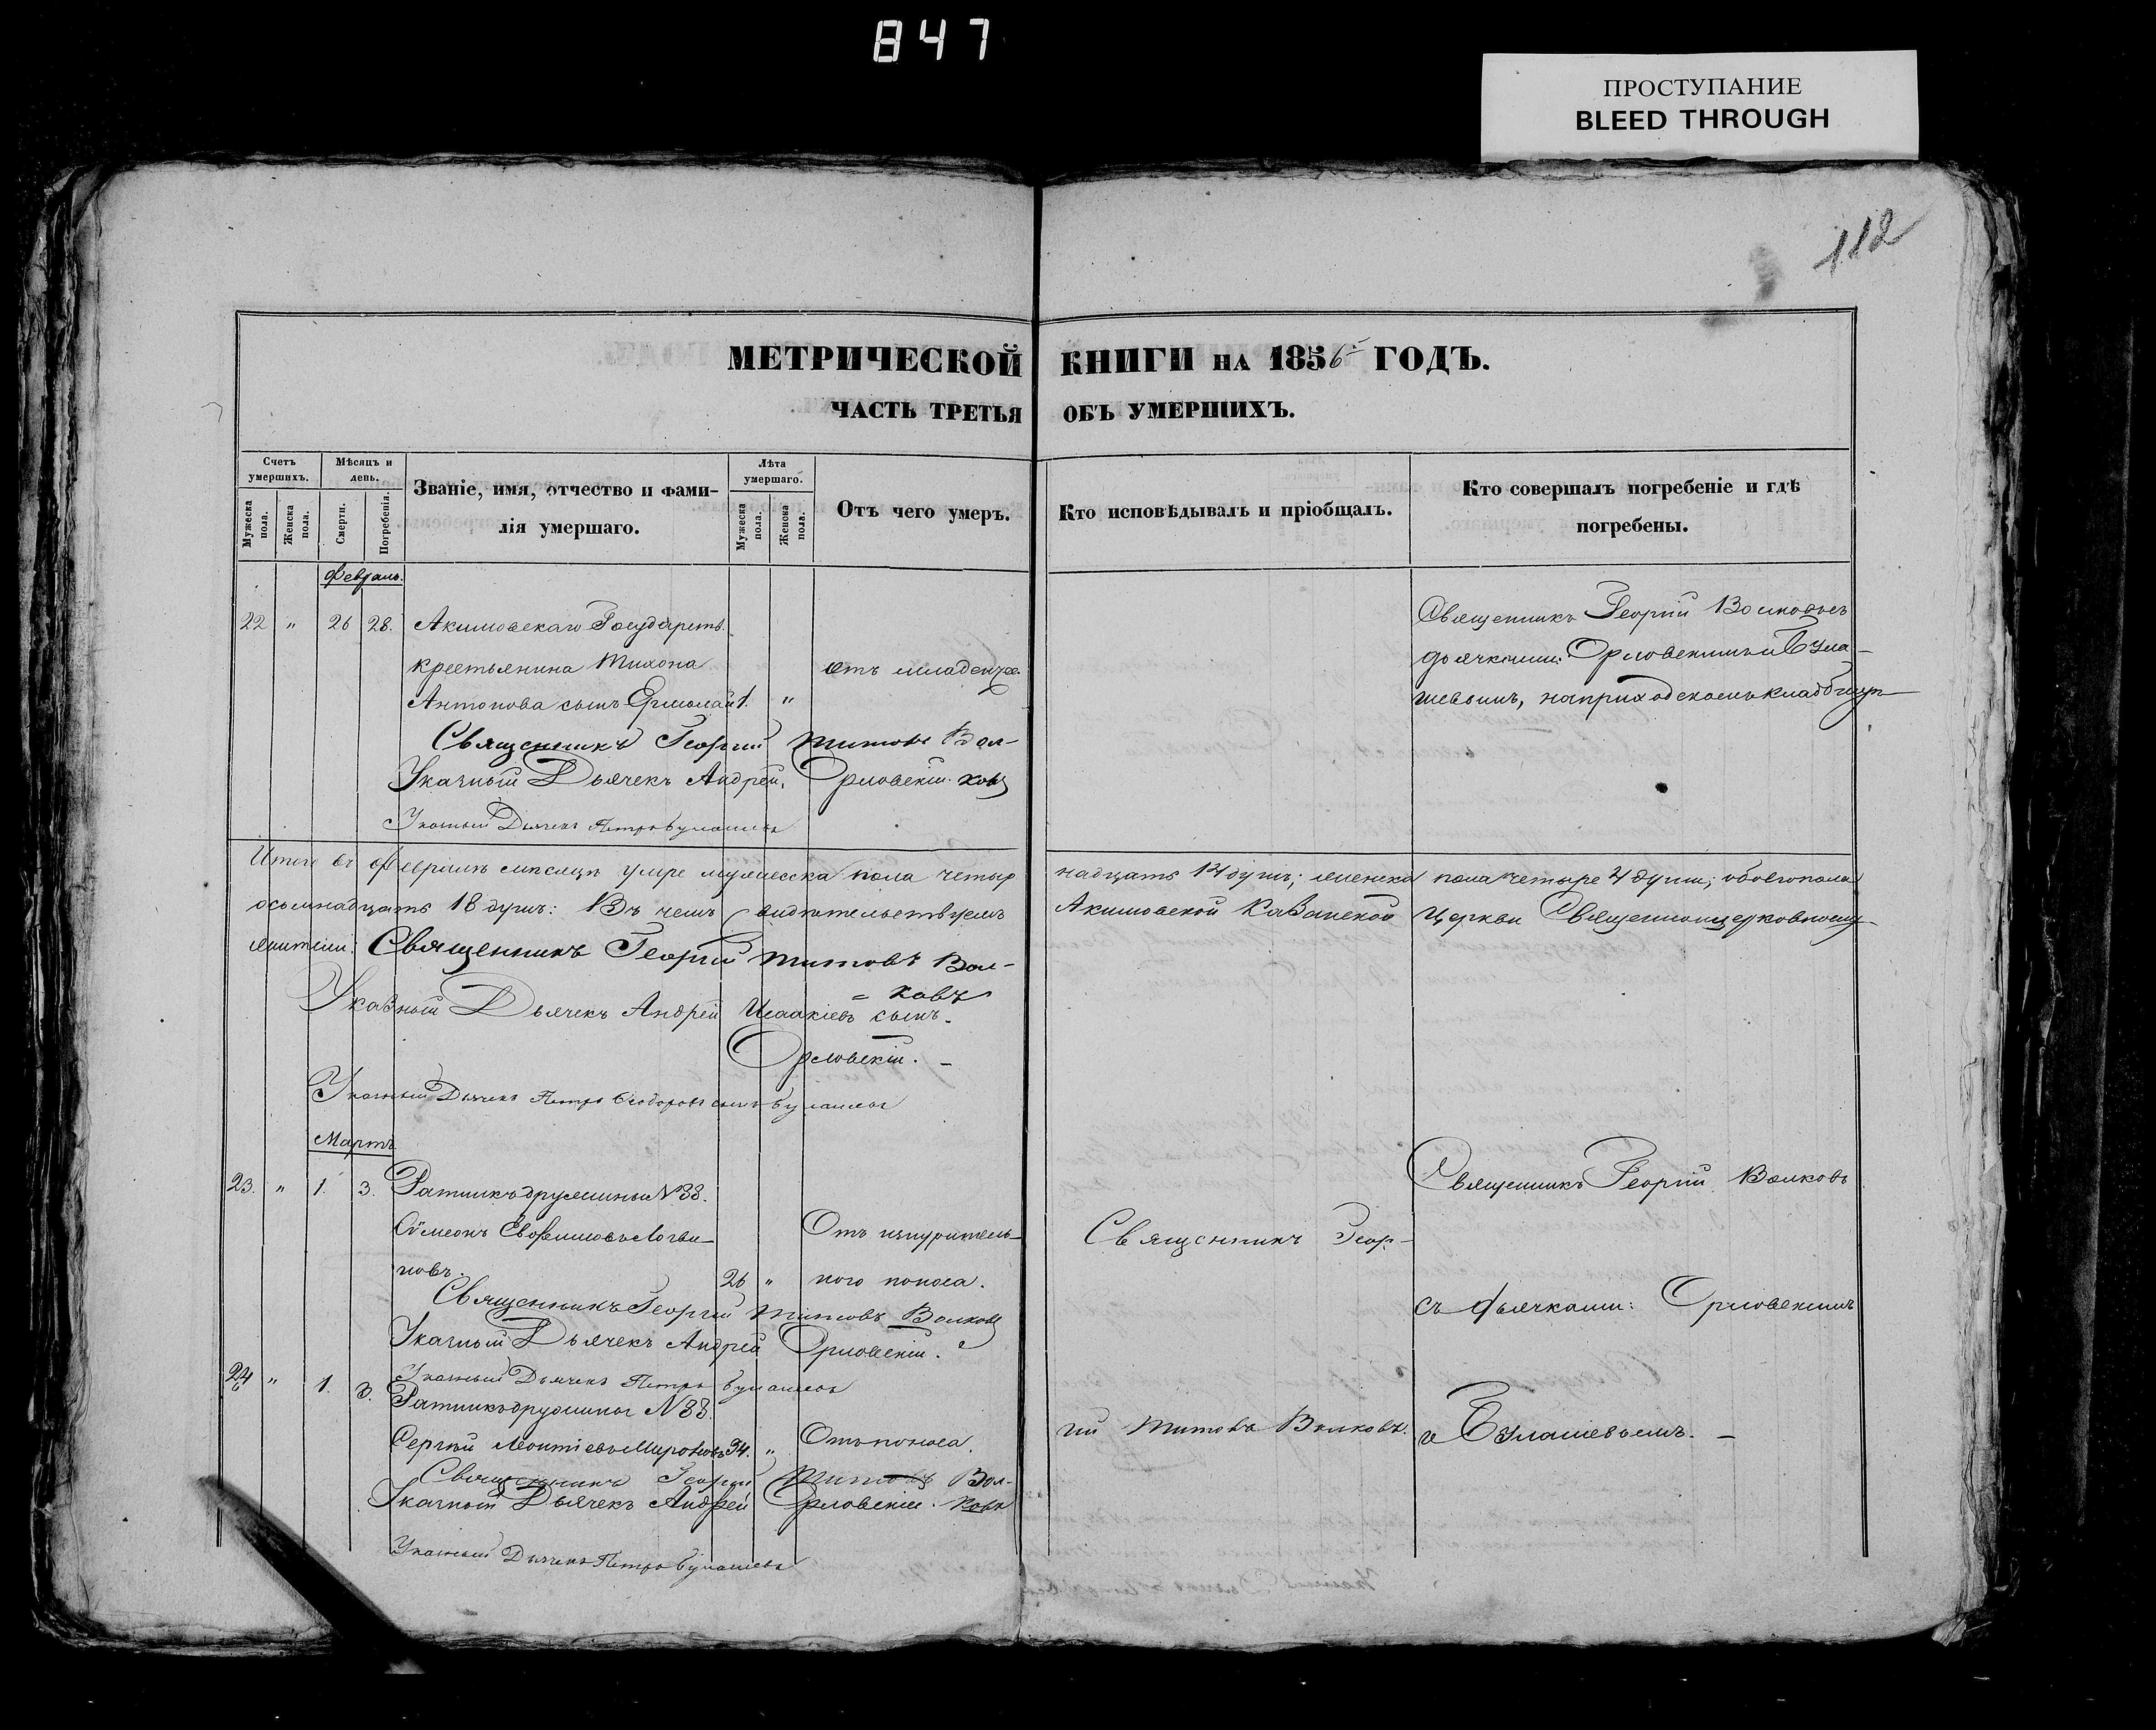 847
ПРОСТУПАНИЕ
BLEED THROUGH
112
МЕТРИЧЕСКОЙ КНИГИ НА 1856 ГОДЪ.
ЧАСТЬ ТРЕТЬЯ ОБЪ УМЕРШИХЪ.
Счетъ умершихъ.
Мужеска пола.
Женска пола.
Мѣсяцъ и день.
Смерти.
Погребенія.
Званіе, имя, отчество и фами-
лія умершаго.
Лѣта умершаго.
Мужеска пола.
Женска пола.
Отъ чего умеръ.
Кто исповѣдывалъ и пріобщалъ.
Кто совершалъ погребеніе и гдѣ
погребены.
Февраль.
22 " 26 28. Акимовскаго Государств.
крестьянина Тихона
Антонова сынъ Ермолай 1. "
отъ младенче.
Священникъ Георгій Волковъ съ
дьячками: Орловскимъ и Була-
шевымъ, на приходскомъ кладбищѣ
Священникъ Георгій Титовъ Вол-
ковъ
Указный Дьячекъ Андрей Орловскій.
Указный Дьячекъ Петръ Булашевъ
Итого въ Февралѣ мѣсяцѣ умре мужеска пола четыр надцать 14 душъ; женска пола четыре 4 души; обоего пола
осьмнадцать 18 душъ: Въ чемъ свидѣтельствуемъ Акимовской Казанской Церкви Священноцерковнослу
жители: Священникъ Георгій Титовъ Вол-
= ковъ
Указный Дьячекъ Андрей Исаакіевъ сынъ
Орловскій.
Указный Дьячекъ Петръ Ѳеодоровъ сынъ Булашевъ
Мартъ
23. " 1. 3. Ратникъ дружины № 38.
Сѵмеонъ Евфимовъ Логви-
новъ. 26 "
Отъ изнуритель-
ного поноса.
Священникъ Георгій Титовъ Волковъ
Указный Дьячекъ Андрей Орловскій.
Указный Дьячекъ Петръ Булашевъ
24 " 1. 3. Ратникъ дружины № 38.
Сергѣй Леонтіевъ Мироновъ 34. " Отъ поноса.
Священникъ Георгій Титовъ Вол-
ковъ
Указный Дьячекъ Андрей Орловскій.
Указный Дьячекъ Петръ Булашевъ
Священникъ Геор-
гій Титовъ Волковъ.
Священникъ Георгій Волковъ
съ дьячками: Орловскимъ
и Булашевымъ. –